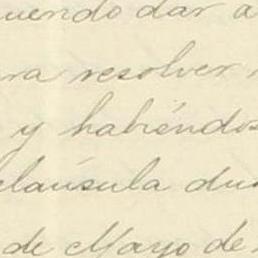 uendo dar a
ra resolver
y habiéndos
cláusula du
de Mayo de